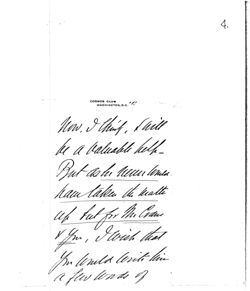 4.
COSMOS CLUB
WASHINGTON, D.C.
Now, I think, will
be a valuable help.
But as he never would
have taken the matter
up but for Mr Evans
& you, I wish that
you would write him
a few words of